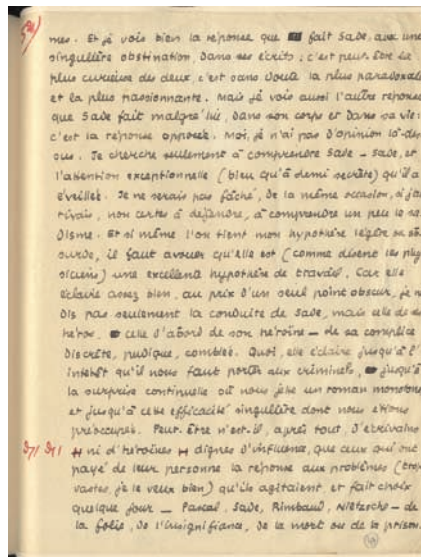 mes. Et je vois bien la réponse que fait Sade, avec une
singulière obstination, dans ses écrits : c'est peut-être la
plus curieuse des deux, c'est sans doute la plus paradoxale
et la plus passionnante. Mais je vois aussi l'autre réponse
que Sade fait malgré lui, dans son corps et dans sa vie :
c'est la réponse opposée. Moi, je n'ai pas d'opinion là-des
sus. Je cherche seulement à comprendre Sade — Sade, et
l'attention exceptionnelle (bien qu'à demi secrète) qu'il a
éveillée. Je ne serais pas fâché, de la même occasion, si j'ar
rivais, non certes à défendre, à comprendre un peu le sa
disme. Et si même l'on tient mon hypothèse légère ou ab
surde, il faut avouer qu'elle est (comme disent les phy
siciens) une excellente hypothèse de travail. Car elle
éclaire assez bien, au prix d'un seul point obscur, je ne
dis pas seulement la conduite de Sade, mais celle de ses
héros, celle d'abord de son héroïne — de sa complice
discrète, pudique, comblée. Quoi, elle éclaire jusqu'à l'
intérêt qu'il nous faut porter aux criminels, jusqu'à
la surprise continuelle où nous jette un roman monotone
et jusqu'à cette efficacité singulière dont nous étions
préoccupés. Peut-être n'est-il, après tout, d'écrivains
ni d'héroïnes dignes d'influence, que ceux qui ont
payé de leur personne la réponse aux problèmes (trop
vastes, je le veux bien) qu'ils agitaient, et fait choix
quelque jour — Pascal, Sade, Rimbaud, Nietzsche — de
la folie, de l'insignifiance, de la mort ou de la prison.